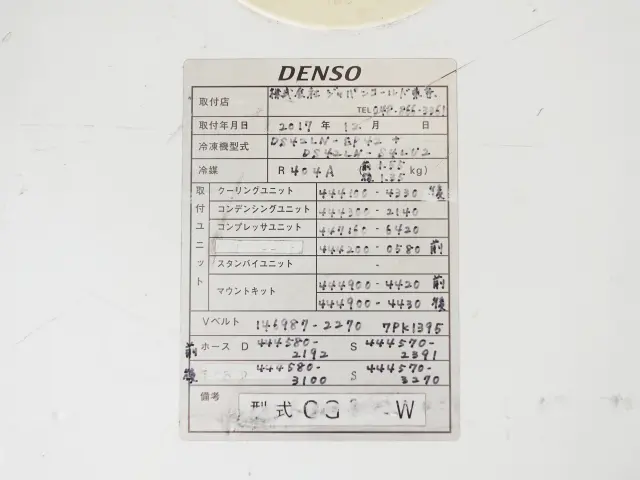 DENSO
取付店 株式会社 ジャパンコールド東京
TEL
取付年月日 2017 年 12 月 日
冷凍機型式
冷媒 R404A (前 1.55 後 1.35 kg)
取付ユニット
クーリングユニット 444100-4330 後
コンデンシングユニット 444300-2140
コンプレッサユニット 447160-6420
444200-0580 前
スタンバイユニット -
マウントキット 444900-4420 前
444900-4430 後
Vベルト 146987-2270 7PK1395
前 ホース D 444580-2192 S 444570-2391
後 444580-3100 S 444570-3270
備考 型式 W